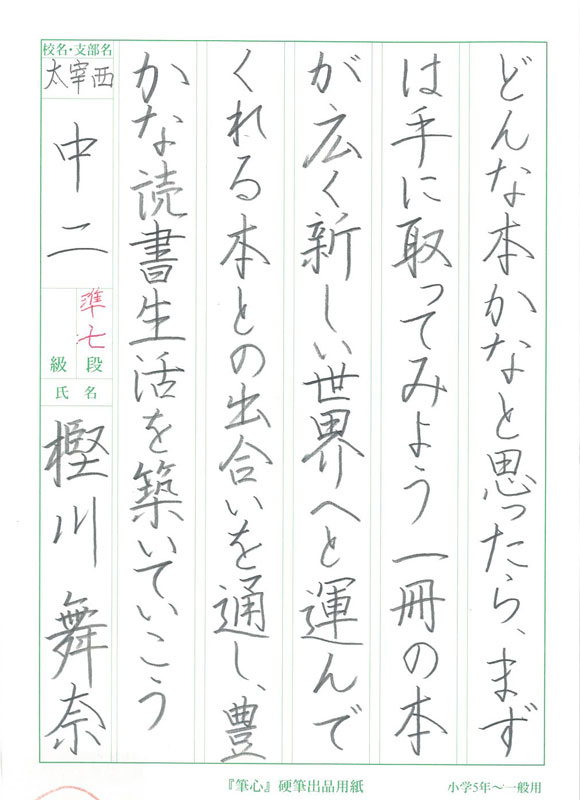 どんな本かなと思ったら、まず
は手に取ってみよう一冊の本
が広く新しい世界へと運んで
くれる本との出合いを通し、豊
かな読書生活を築いていこう
校名・支部名
太宰西
中二
準七
級 段
氏 名
樫川舞奈
『筆心』硬筆出品用紙
小学5年〜一般用